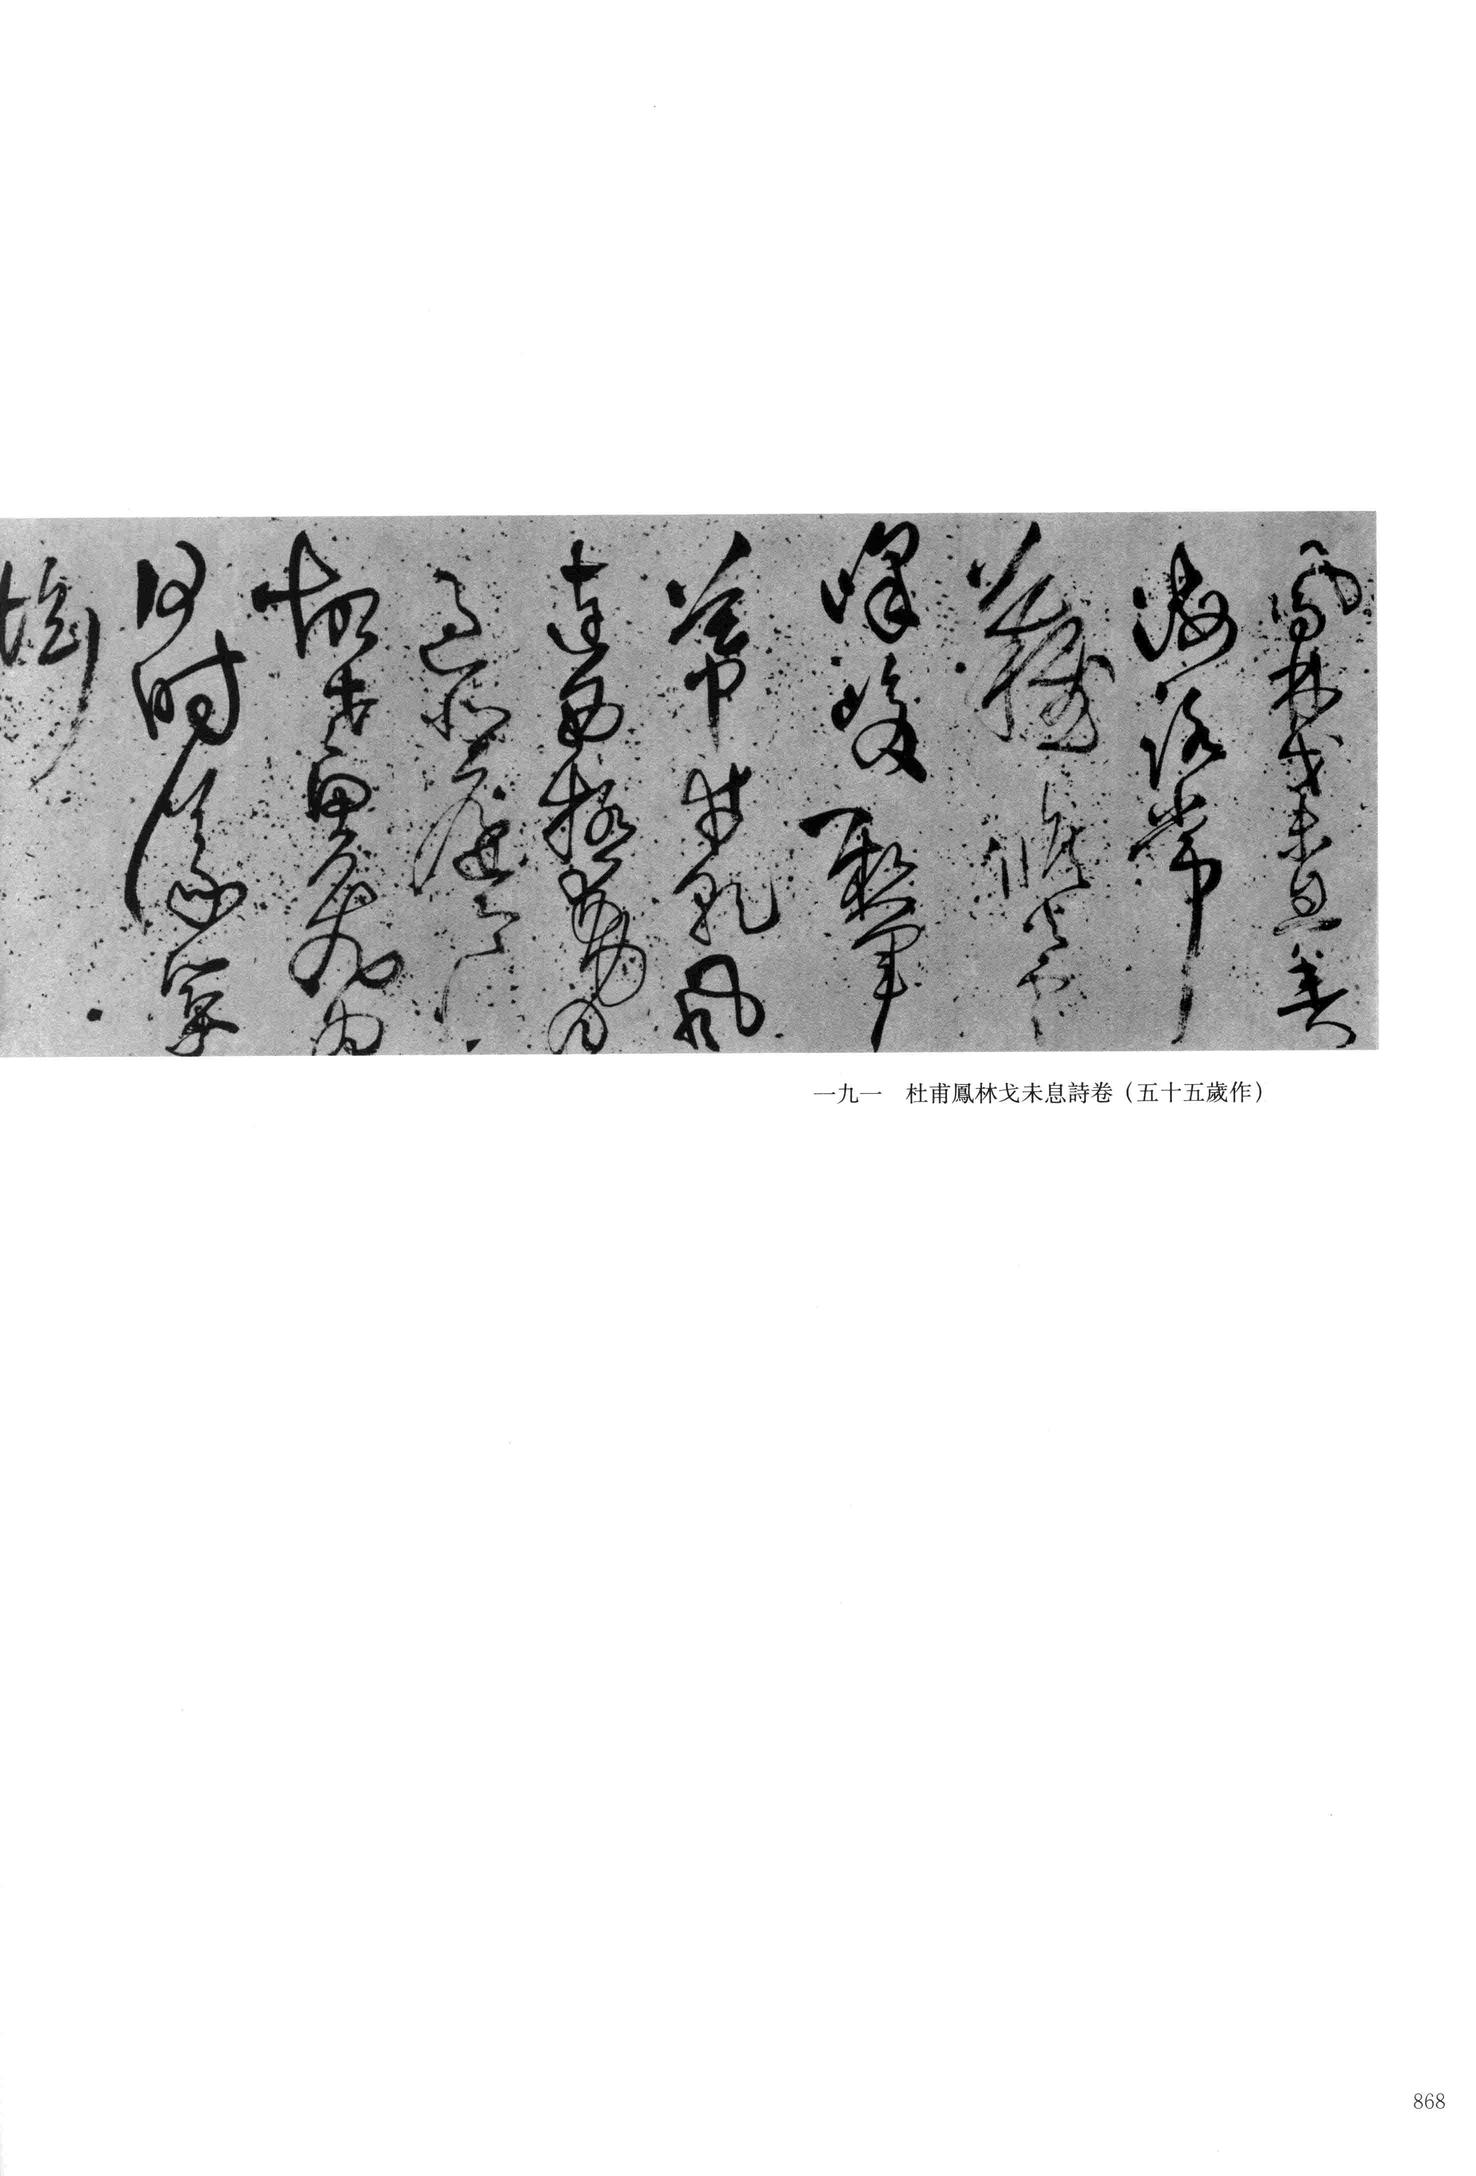 鳳林戈未息魚
海路常
難候火雲
峰峻懸軍
幕井乾風
連西極動月
過北庭寒
故老思飛將
何時議築
壇
一九一　杜甫鳳林戈未息詩卷（五十五歲作）
868